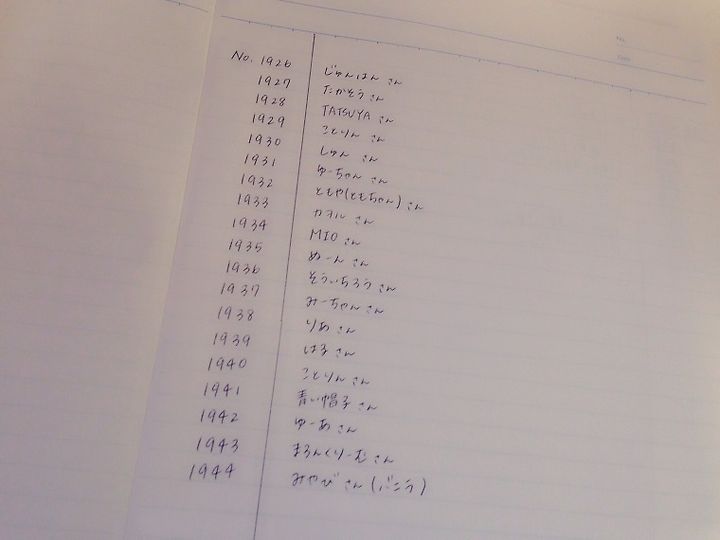 No. 1926 じゅんぱん さん
1927 たかそう さん
1928 TATSUYA さん
1929 ことりん さん
1930 しゅん さん
1931 ゆーちゃん さん
1932 ともや(ともちゃん) さん
1933 カオル さん
1934 MIO さん
1935 ぬーん さん
1936 そういちろう さん
1937 みーちゃん さん
1938 りあ さん
1939 はる さん
1940 ことりん さん
1941 青い帽子 さん
1942 ゆーあ さん
1943 まろんくりーむ さん
1944 みやび さん (バニラ)